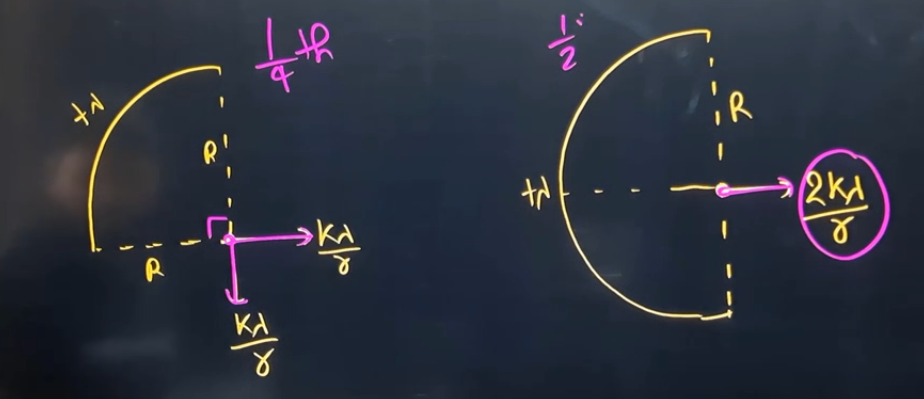 1/4 th
+λ
R
R
Kλ/r
Kλ/r
1/2
R
+λ
2Kλ/r